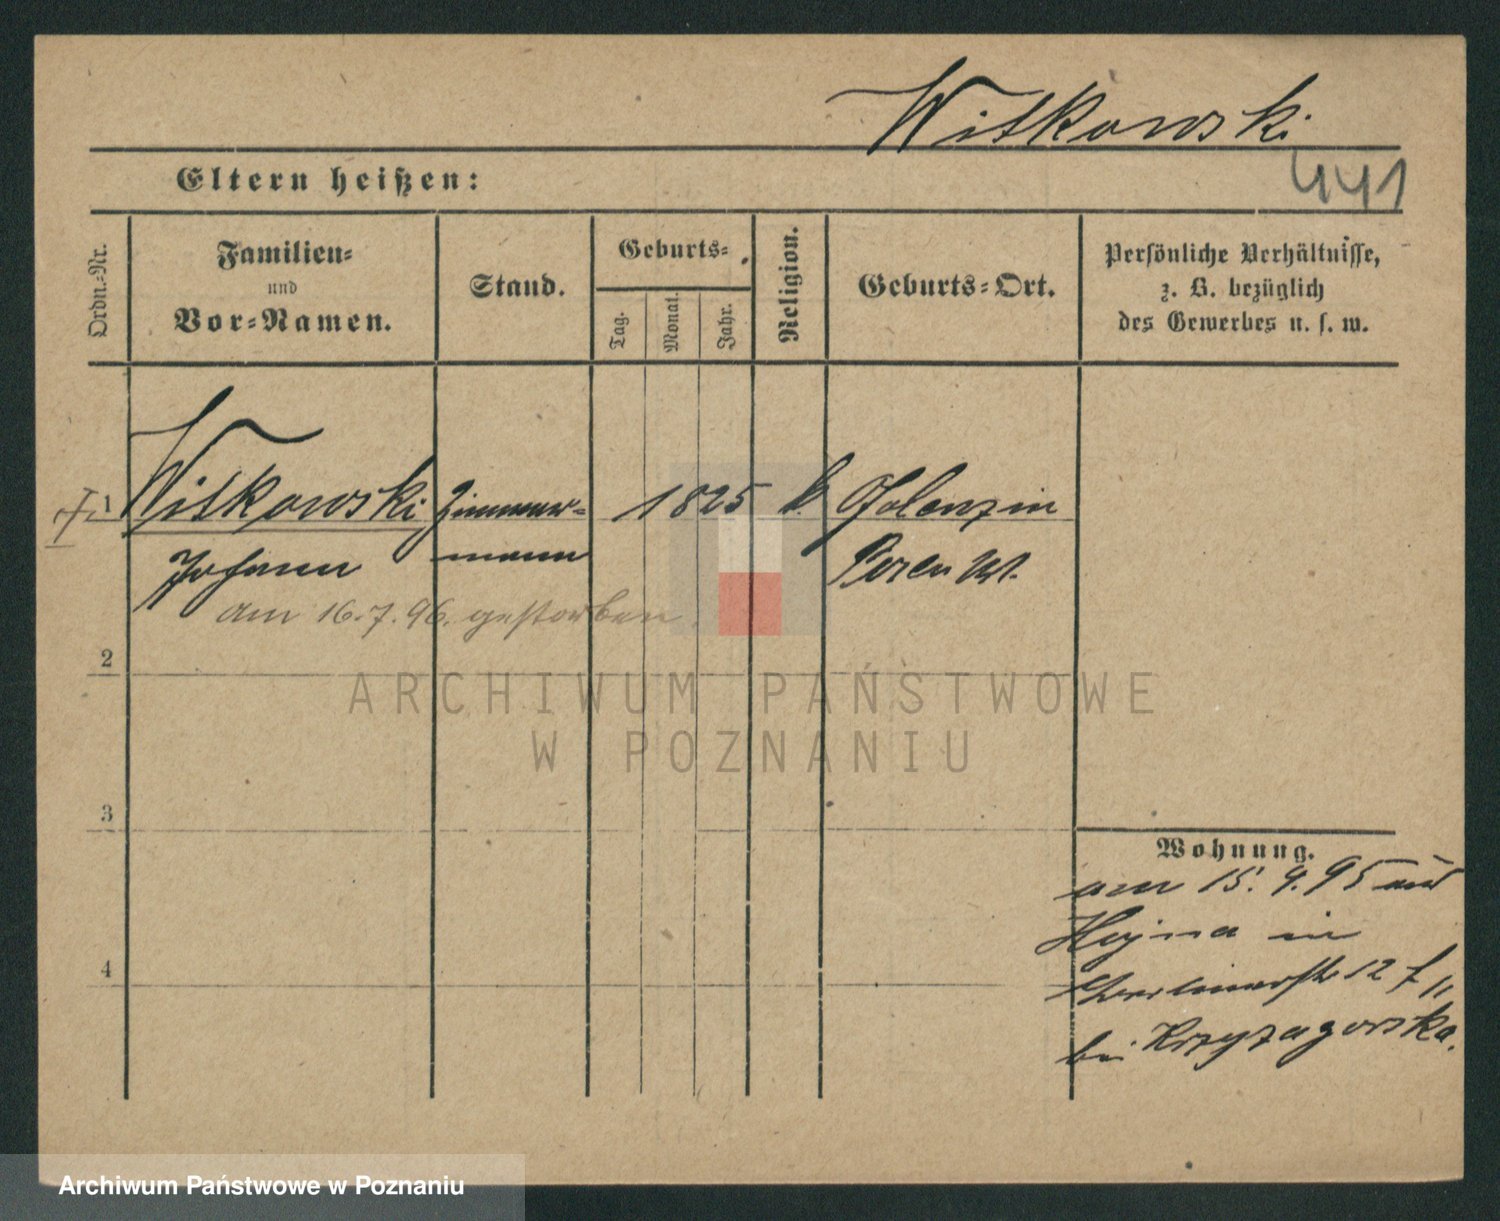 Witkowski
Eltern heißen:
441
Ordn.-Nr.
Familien-
und
Vor-Namen.
Stand.
Geburts-
Tag.
Monat.
Jahr.
Religion.
Geburts-Ort.
Persönliche Verhältnisse,
z. B. bezüglich
des Gewerbes u. s. w.
1
Witkowski
Johann
Zimmer-
mann
1825
k.
Posen
am 16.7.96. gestorben.
2
ARCHIWUM PAŃSTWOWE
W POZNANIU
3
Wohnung.
am 15. 9. 95 aus
Hojna in
Berlinerstr 12
bei Krzyzagorska.
4
Archiwum Państwowe w Poznaniu